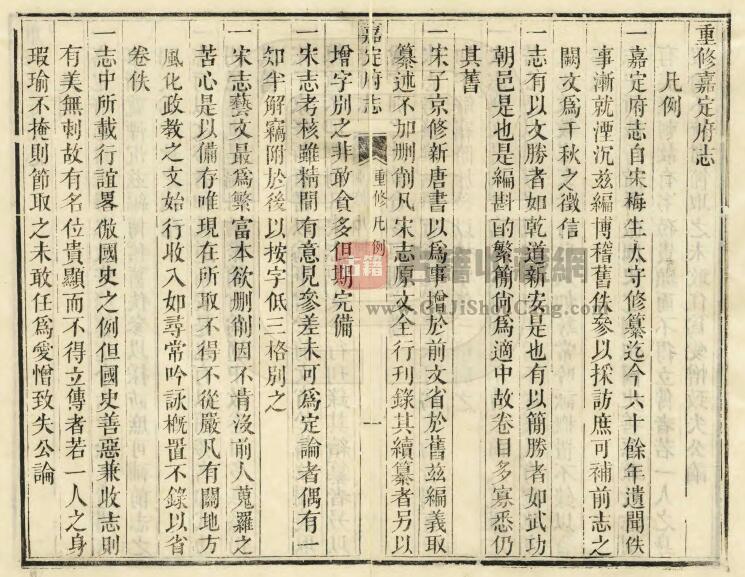 重修嘉定府志
凡例
一嘉定府志自宋梅生太守修纂迄今六十餘年遺聞佚
事漸就湮沉茲編博稽舊佚參以採訪庶可補前志之
闕文爲千秋之徵信
一志有以文勝者如乾道新安是也有以簡勝者如武功
朝邑是也是編斟酌繁簡尙爲適中故卷目多寡悉仍
其舊
一宋子京修新唐書以爲事增於前文省於舊茲編義取
纂述不加刪削凡宋志原文全行刊錄其續纂者另以
嘉定府志
重修凡例
一
增字別之非敢貪多但期完備
一宋志考核雖精間有意見參差未可爲定論者偶有一
知半解竊附於後以按字低三格別之
一宋志藝文最爲繁富本欲刪削因不肯沒前人蒐羅之
苦心是以備存唯現在所取不得不從嚴凡有關地方
風化政教之文始行收入如尋常吟詠槪置不錄以省
卷佚
一志中所載行誼畧倣國史之例但國史善惡兼收志則
有美無刺故有名位貴顯而不得立傳者若一人之身
瑕瑜不掩則節取之未敢任爲愛憎致失公論
古籍
www.GuJiShouCang.com